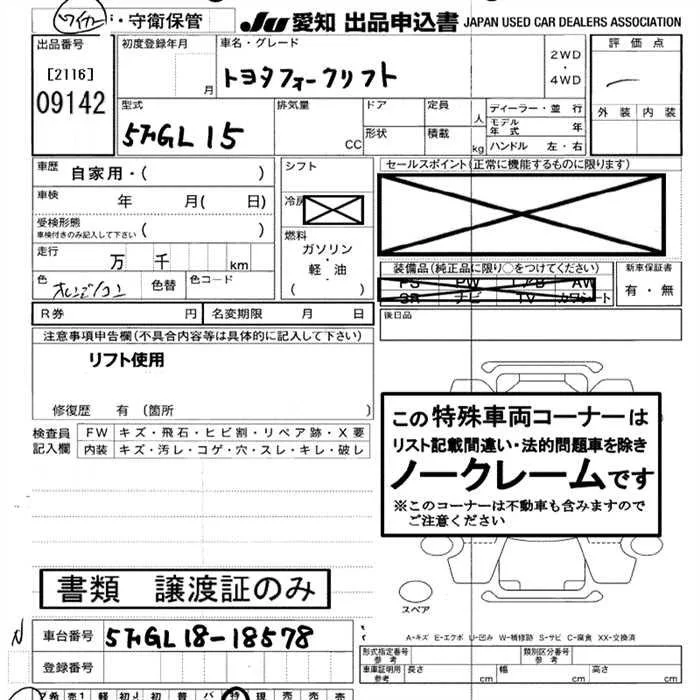 ・守衛保管
JU 愛知 出品申込書 JAPAN USED CAR DEALERS ASSOCIATION
出品番号
[2116]
09142
初度登録年月
月
車名・グレード
トヨタフォークリフト
2WD
・
4WD
評価点
外装 内装
型式
排気量
CC
ドア
形状
定員
人
積載
kg
ディーラー・並行
モデル年式 年
ハンドル 左・右
車歴
自家用・( )
車検 年 月( 日)
受検形態
車検付きのみ記入して下さい ( )
走行 万 千 km
色
色替
色コード
シフト
冷房
燃料
ガソリン
・
軽・油
( )
セールスポイント(正常に機能するものに限ります)
装備品(純正品に限り○をつけてください)
PS PW エアB AW
SR ナビ TV カワシート
新車保証書
有・無
後日品
R券 円 名変期限 月 日
注意事項申告欄(不具合内容等は具体的に記入して下さい)
リフト使用
修復歴 有(箇所 )
検査員
記入欄
FW キズ・飛石・ヒビ割・リペア跡・X要
内装 キズ・汚レ・コゲ・穴・スレ・キレ・破レ
この特殊車両コーナーは
リスト記載間違い・法的問題車を除き
ノークレームです
※このコーナーは不動車も含みますので
ご注意ください
スペア
書類 譲渡証のみ
車台番号
登録番号
A-キズ E-エクボ U-凹み W-補修跡 S-サビ C-腐食 XX-交換済
形式指定番号
参考
類別区分番号
参考
車庫証明用
参考
長さ cm 幅 cm 高さ cm